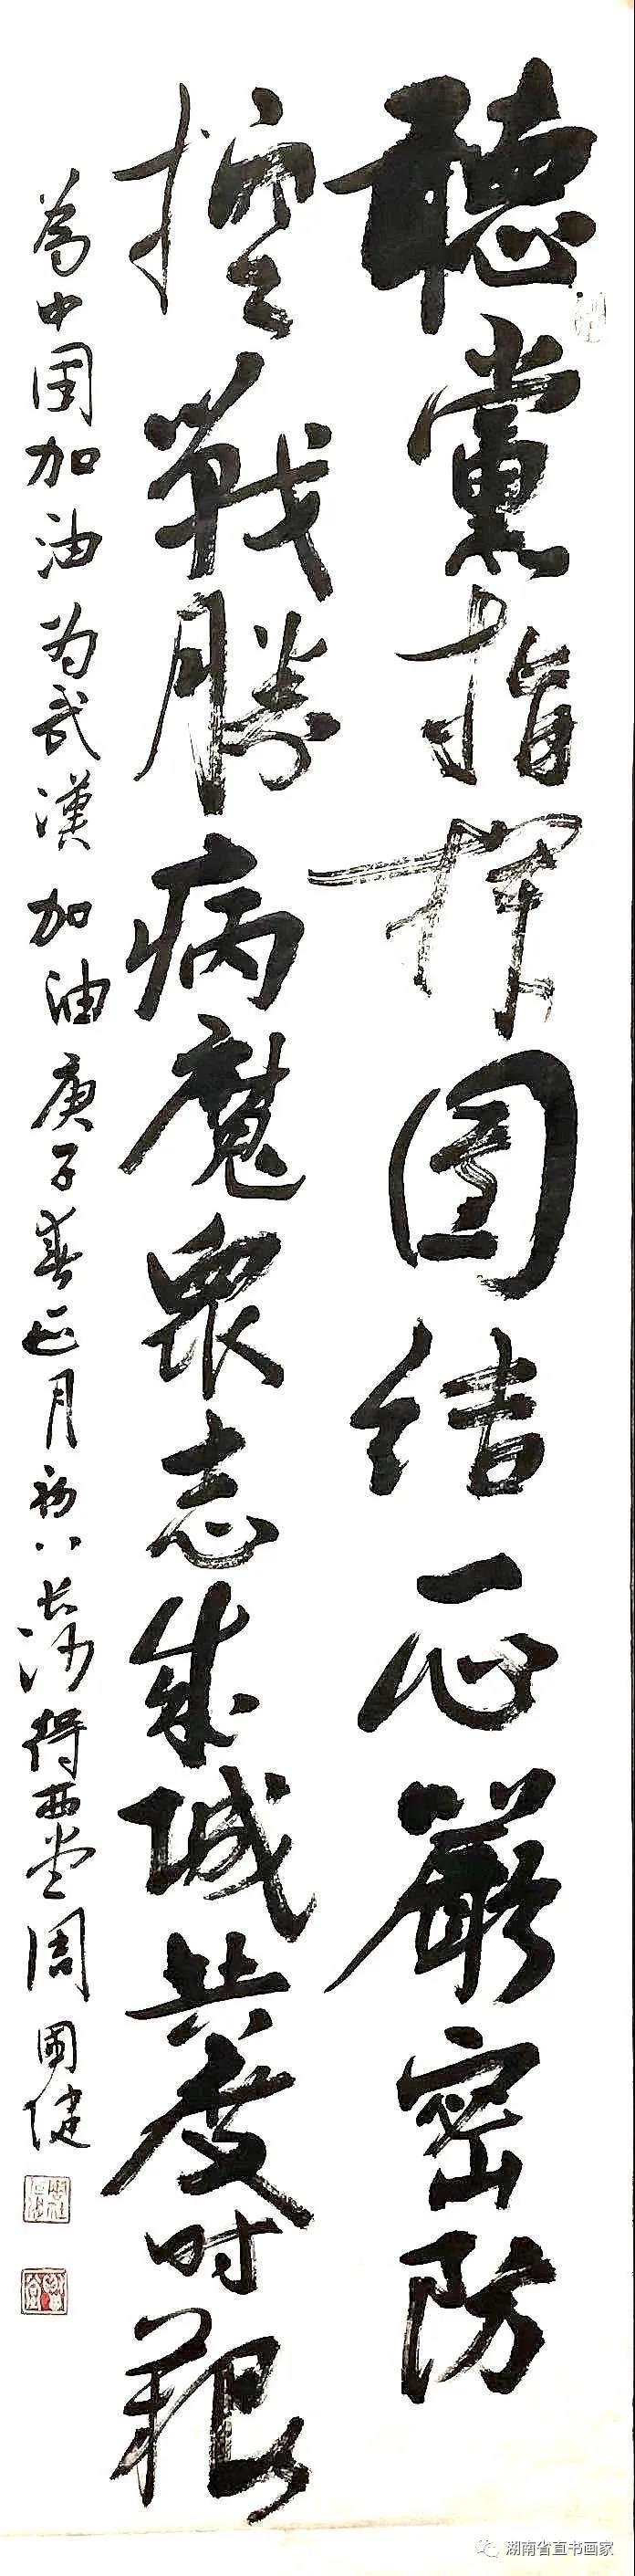 聽黨指揮團结一心嚴密防
控戰勝病魔眾志成城共度时艱
為中國加油为武漢加油庚子春正月初八长沙得西堂周國健
湖南省直书画家